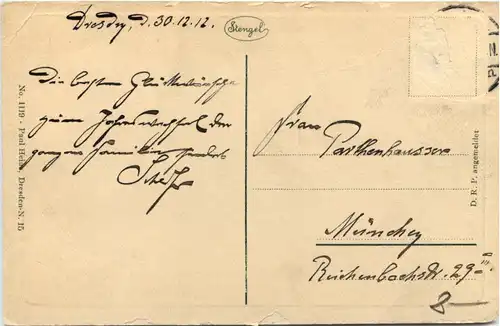 Dresden, d. 30.12.12.
Stengel
Die besten Glückwünsche
zum Jahreswechsel der
ganzen Familie sendet
Frau
Parthenhausser
München
Reichenbachstr. 29
8
No. 1119 - Paul Heine, Dresden-N. 15
D. R. P. angemeldet